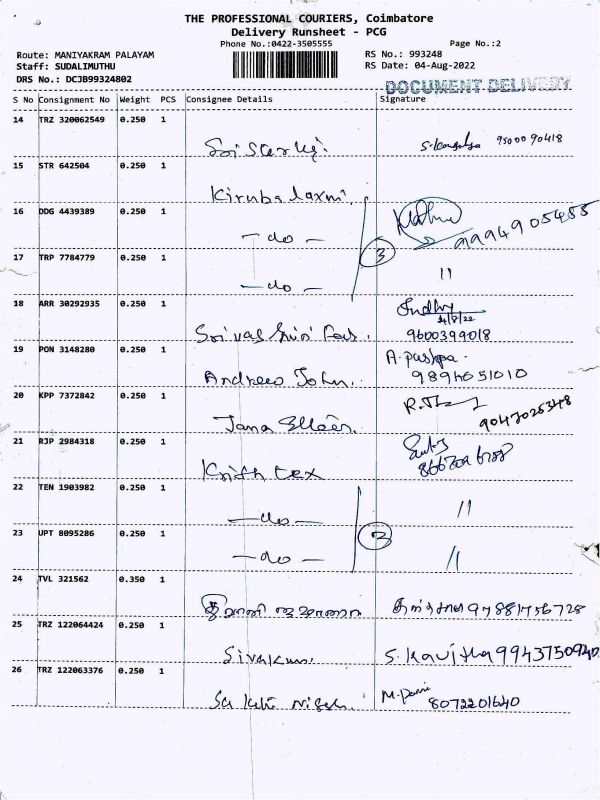 THE PROFESSIONAL COURIERS, Coimbatore
Delivery Runsheet - PCG
Phone No.:0422-3505555
Page No.:2
Route: MANIYAKRAM PALAYAM
RS No.: 993248
Staff: SUDALIMUTHU
RS Date: 04-Aug-2022
DRS No.: DCJB99324802
DOCUMENT DELIVERY
S No Consignment No Weight PCS Consignee Details Signature
14 TRZ 320062549 0.250 1
95000 90418
15 STR 642504 0.250 1
Kirubalaxmi.
16 DDG 4439389 0.250 1
-do-
9994905455
3
17 TRP 7784779 0.250 1
-do-
"
18 ARR 30292935 0.250 1
Indhu
4/8/22
9600399018
19 PON 3148280 0.250 1
Andrews John.
A. pushpa.
9894051010
20 KPP 7372842 0.250 1
Jana
9047025348
21 RJP 2984318 0.250 1
Krith tex
22 TEN 1903982 0.250 1
-do-
"
23 UPT 8095286 0.250 1
-do-
"
24 TVL 321562 0.350 1
97881756728
25 TRZ 122064424 0.250 1
Sivakumi.
S. Kavitha 9943750940
26 TRZ 122063376 0.250 1
8072201640